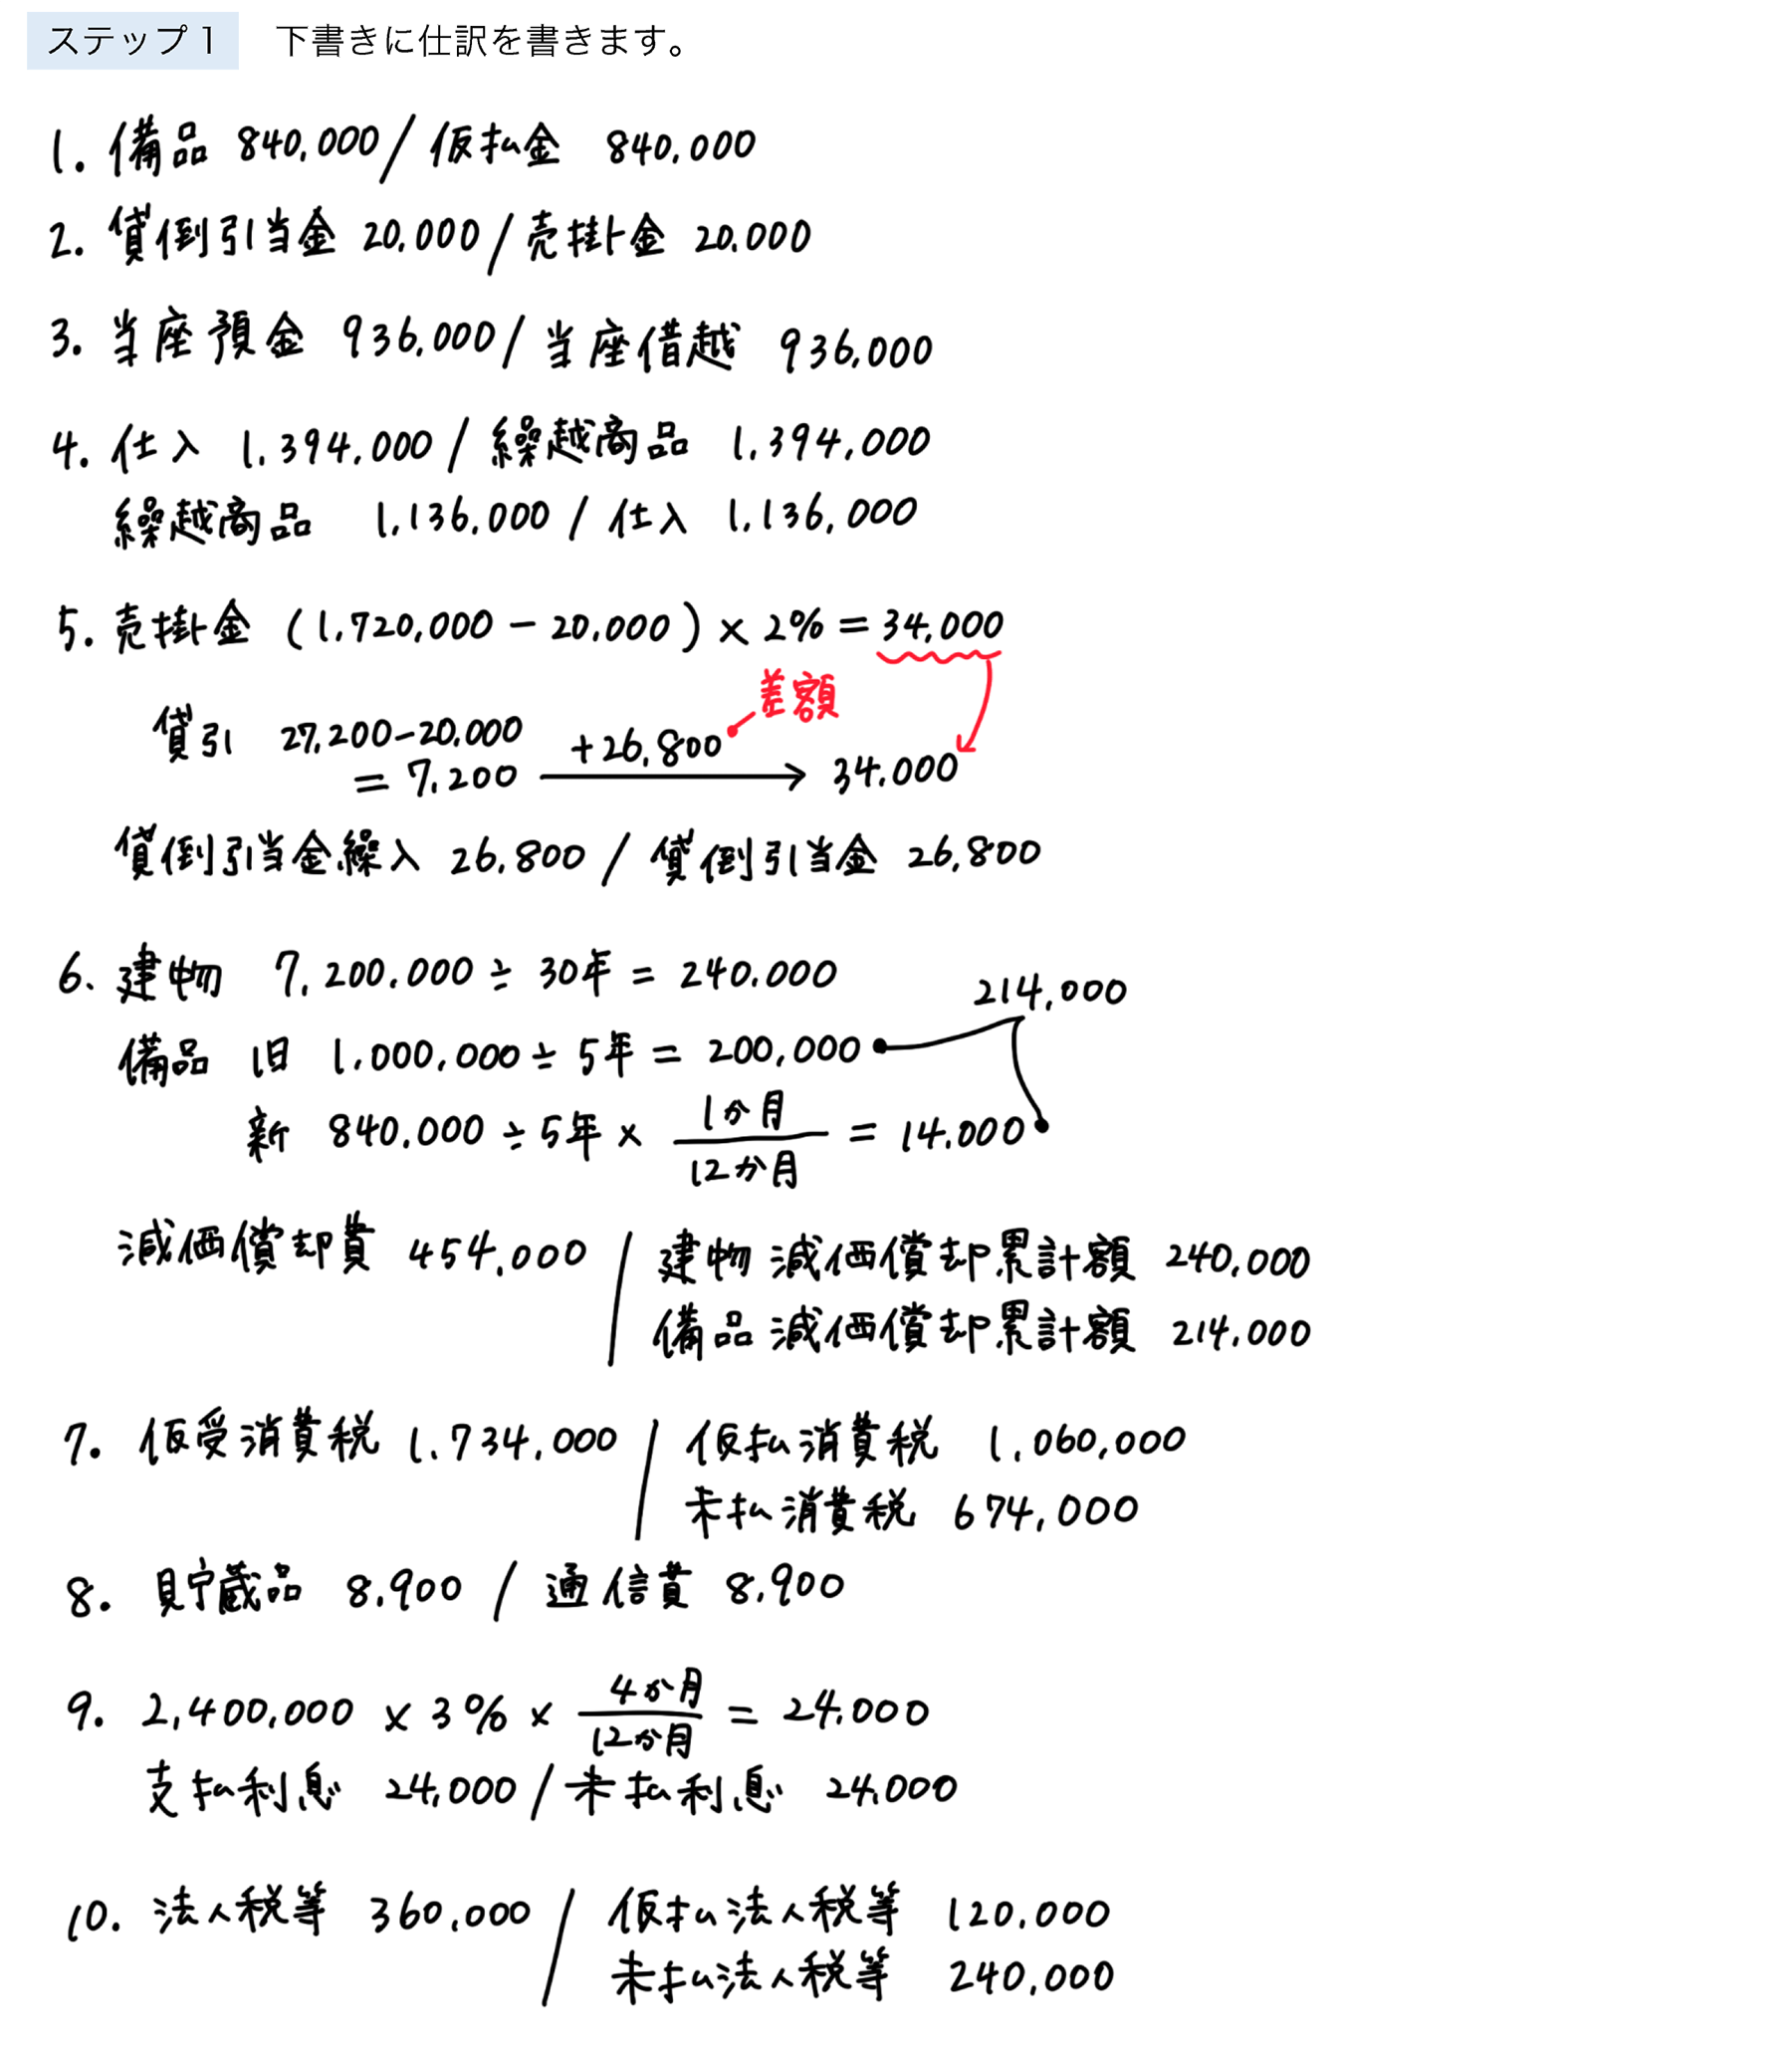 ステップ1 下書きに仕訳を書きます。
1. 備品 840,000 / 仮払金 840,000
2. 貸倒引当金 20,000 / 売掛金 20,000
3. 当座預金 936,000 / 当座借越 936,000
4. 仕入 1,394,000 / 繰越商品 1,394,000
繰越商品 1,136,000 / 仕入 1,136,000
5. 売掛金 (1,720,000 − 20,000) × 2% = 34,000
差額
貸引 27,200−20,000 +26,800
= 7,200 → 34,000
貸倒引当金繰入 26,800 / 貸倒引当金 26,800
6. 建物 7,200,000 ÷ 30年 = 240,000
214,000
備品 旧 1,000,000 ÷ 5年 = 200,000
新 840,000 ÷ 5年 × 1か月/12か月 = 14,000
減価償却費 454,000 / 建物減価償却累計額 240,000
備品減価償却累計額 214,000
7. 仮受消費税 1,734,000 / 仮払消費税 1,060,000
未払消費税 674,000
8. 貯蔵品 8,900 / 通信費 8,900
9. 2,400,000 × 3% × 4か月/12か月 = 24,000
支払利息 24,000 / 未払利息 24,000
10. 法人税等 360,000 / 仮払法人税等 120,000
未払法人税等 240,000